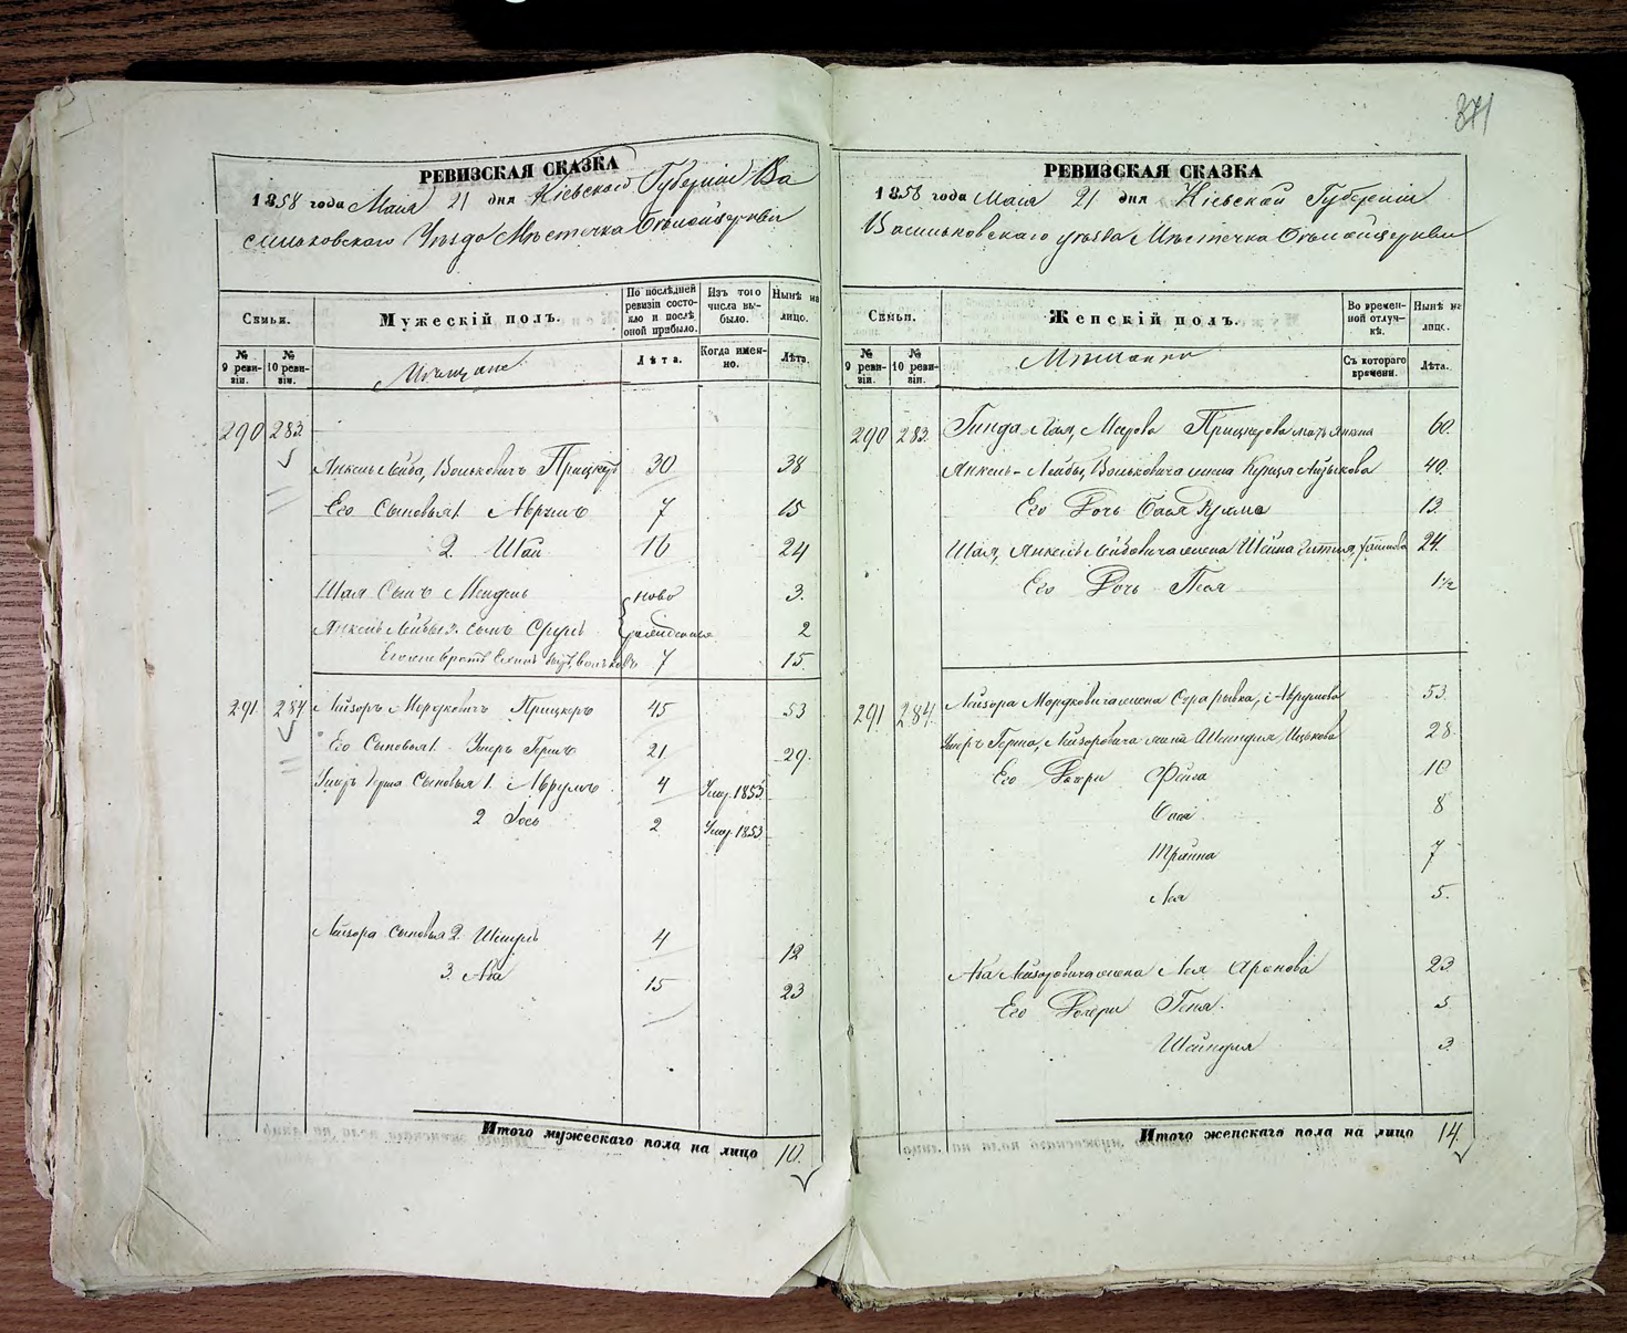 371
РЕВИЗСКАЯ СКАЗКА
1858 года Мая 21 дня Кіевской Губерніи Ва
сильковскаго Уѣзда Мѣстечка Бѣлойцеркви
Семьи.
Мужескій полъ.
По послѣдней ревизіи состояло и послѣ оной прибыло.
Изъ того числа выбыло.
Нынѣ на лицо.
№ 9 ревизіи.
№ 10 ревизіи.
Мѣщане
Лѣта.
Когда именно.
Лѣта.
290 283
Анкель Лейба, Волькович Прицкер 30 38
Его Сыновья 1. Аврумъ 7 15
2. Шая 16 24
Шая Сынъ Мендель ново 3.
Анкель Лейбы 3. сынъ Сруль рожденные 2
7 15.
291 284 Лейзоръ Мордковичъ Прицкеръ 45 53
Его Сыновья 1. Умеръ Гершъ 21 29.
Герша Сыновья 1. Аврумъ 4 Умер. 1853.
2 Іось 2 Умер. 1853.
Лейзора сыновья 2. 4 12
3. Аба 15 23
Итого мужескаго пола на лицо 10.
РЕВИЗСКАЯ СКАЗКА
1858 года Мая 21 дня Кіевской Губерніи
Васильковскаго уѣзда Мѣстечка Бѣлойцеркви
Семьи.
Женскій полъ.
Во временной отлучкѣ.
Нынѣ на лицо.
№ 9 ревизіи.
№ 10 ревизіи.
Мѣщанки
Съ котораго времени.
Лѣта.
290 283 Гинда Лая, Меерова Прицкерова мать 60.
Анкель-Лейбы, Вольковича жена 40.
Его Дочь Бася 13.
Шая, Анкель Лейбовича жена Шейна 24.
Его Дочь Песя 1 1/2
291. 284. Лейзора Мордковича жена Сура рывка, Аврумова 53.
Герша, Лейзоровича жена Шейндля Ицькова 28.
Его Дочери Фейга 10
Бася 8
Трейна 7
Лея 5.
Аба Лейзоровича жена Лея Аронова 23
Его Дочери Геня. 5
Шейндля 3.
Итого женскаго пола на лицо 14.